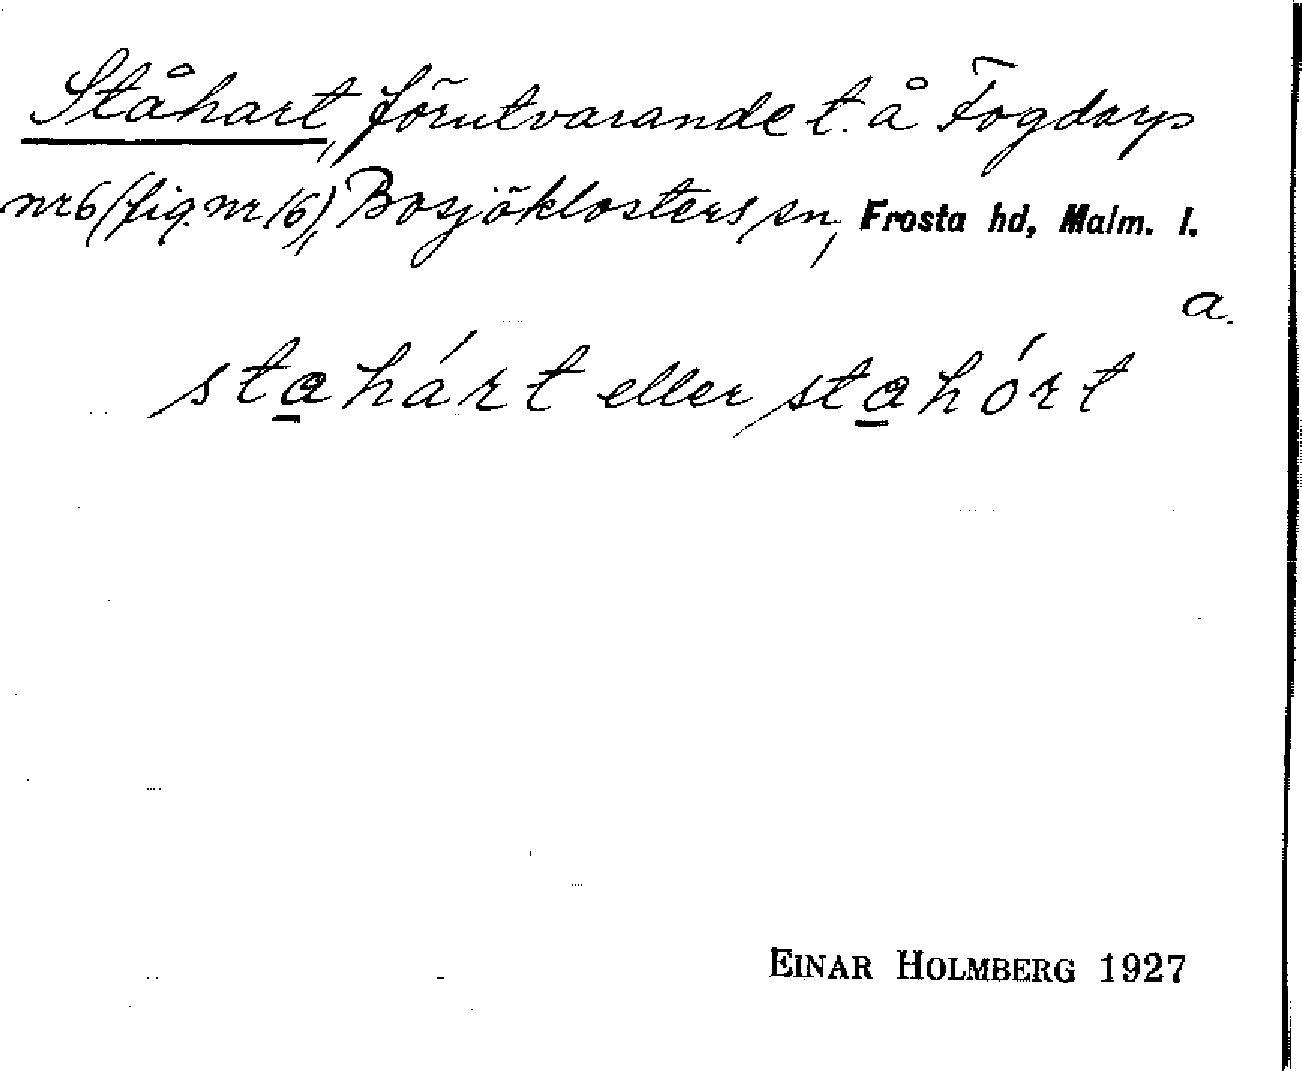 Ståhart, förutvarande t. å Fogdarp
nr 6 (fig. nr 16), Bosjöklosters sn, Frosta hd, Malm. l.
a.
stahárt eller stahórt
EINAR HOLMBERG 1927